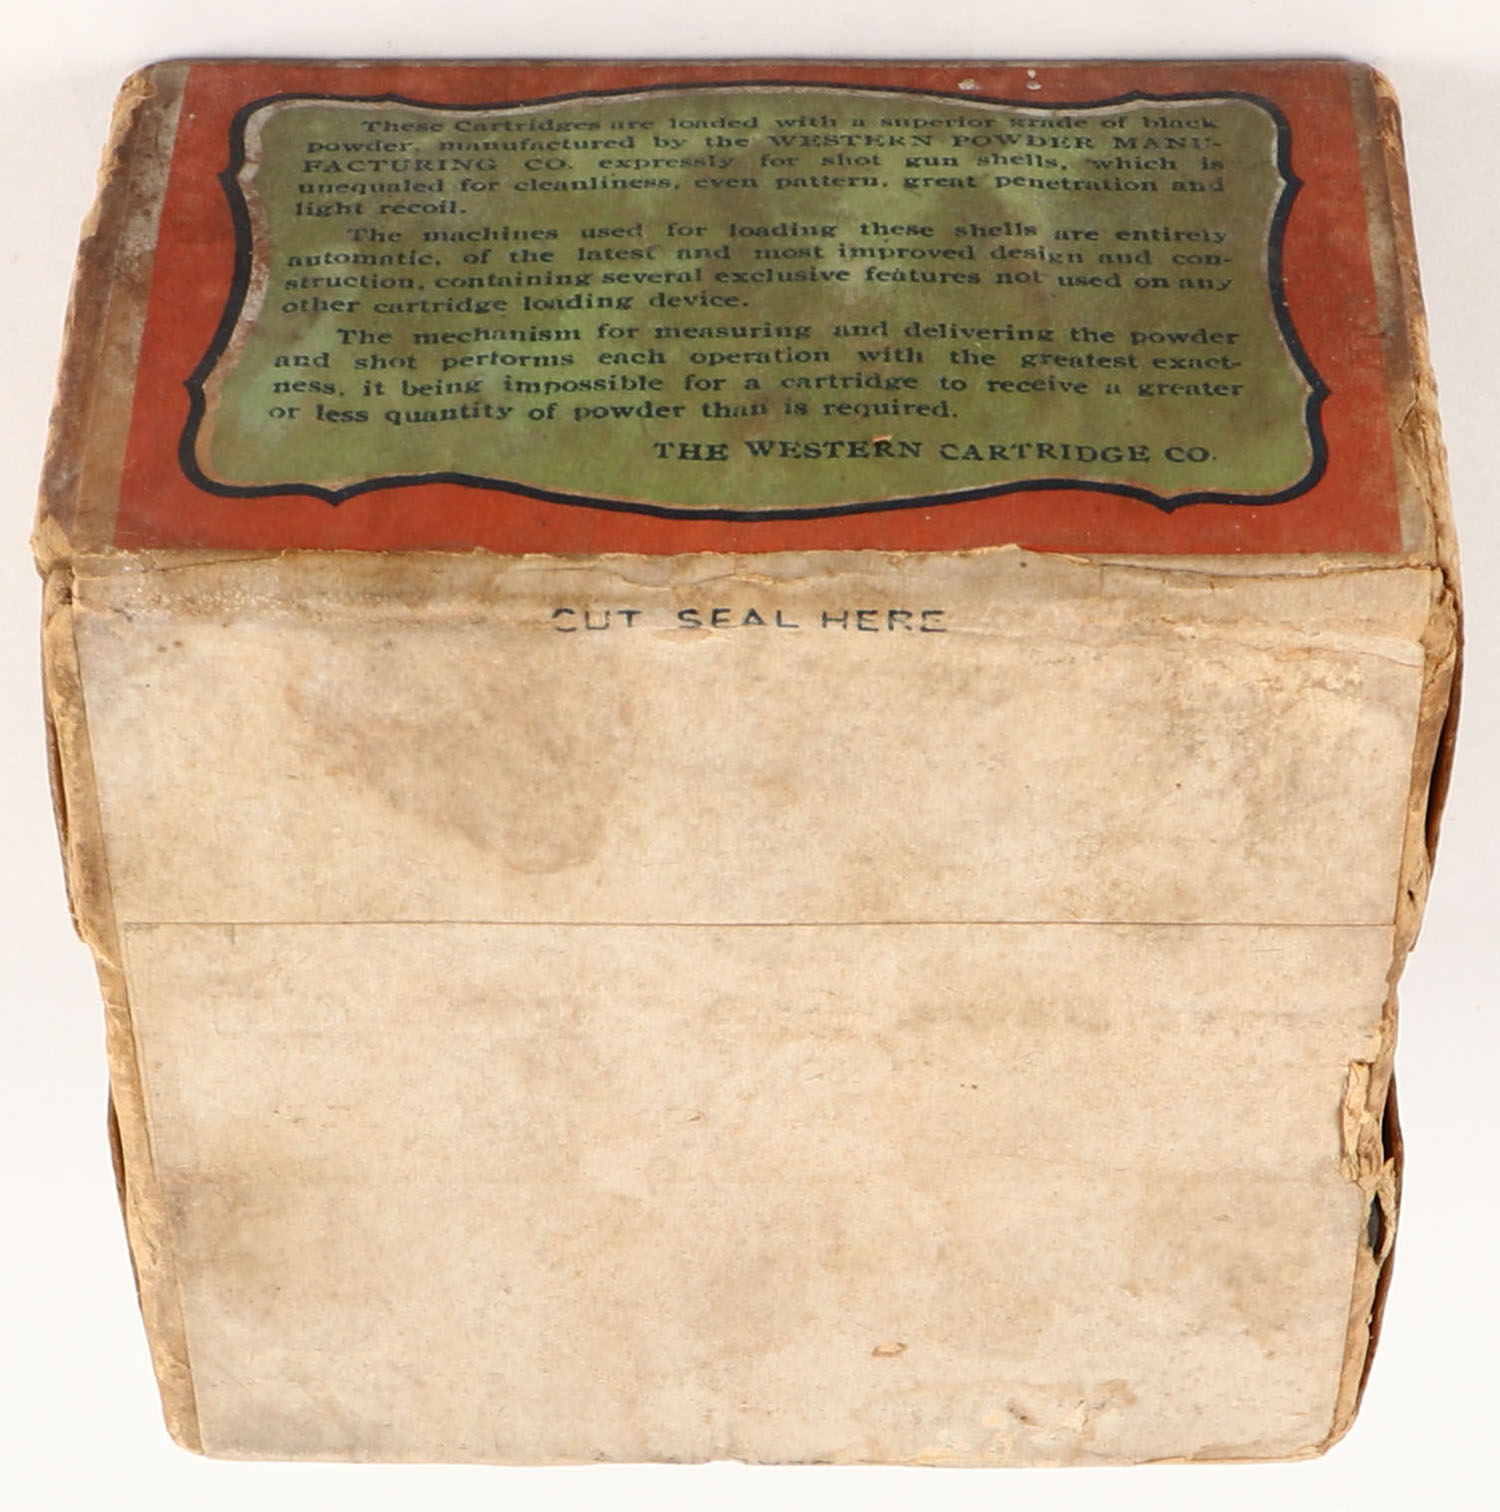 These Cartridges are loaded with a superior grade of black
powder, manufactured by the WESTERN POWDER MANU-
FACTURING CO. expressly for shot gun shells, which is
unequaled for cleanliness, even pattern, great penetration and
light recoil.
The machines used for loading these shells are entirely
automatic, of the latest and most improved design and con-
struction, containing several exclusive features not used on any
other cartridge loading device.
The mechanism for measuring and delivering the powder
and shot performs each operation with the greatest exact-
ness, it being impossible for a cartridge to receive a greater
or less quantity of powder than is required.
THE WESTERN CARTRIDGE CO.
CUT SEAL HERE